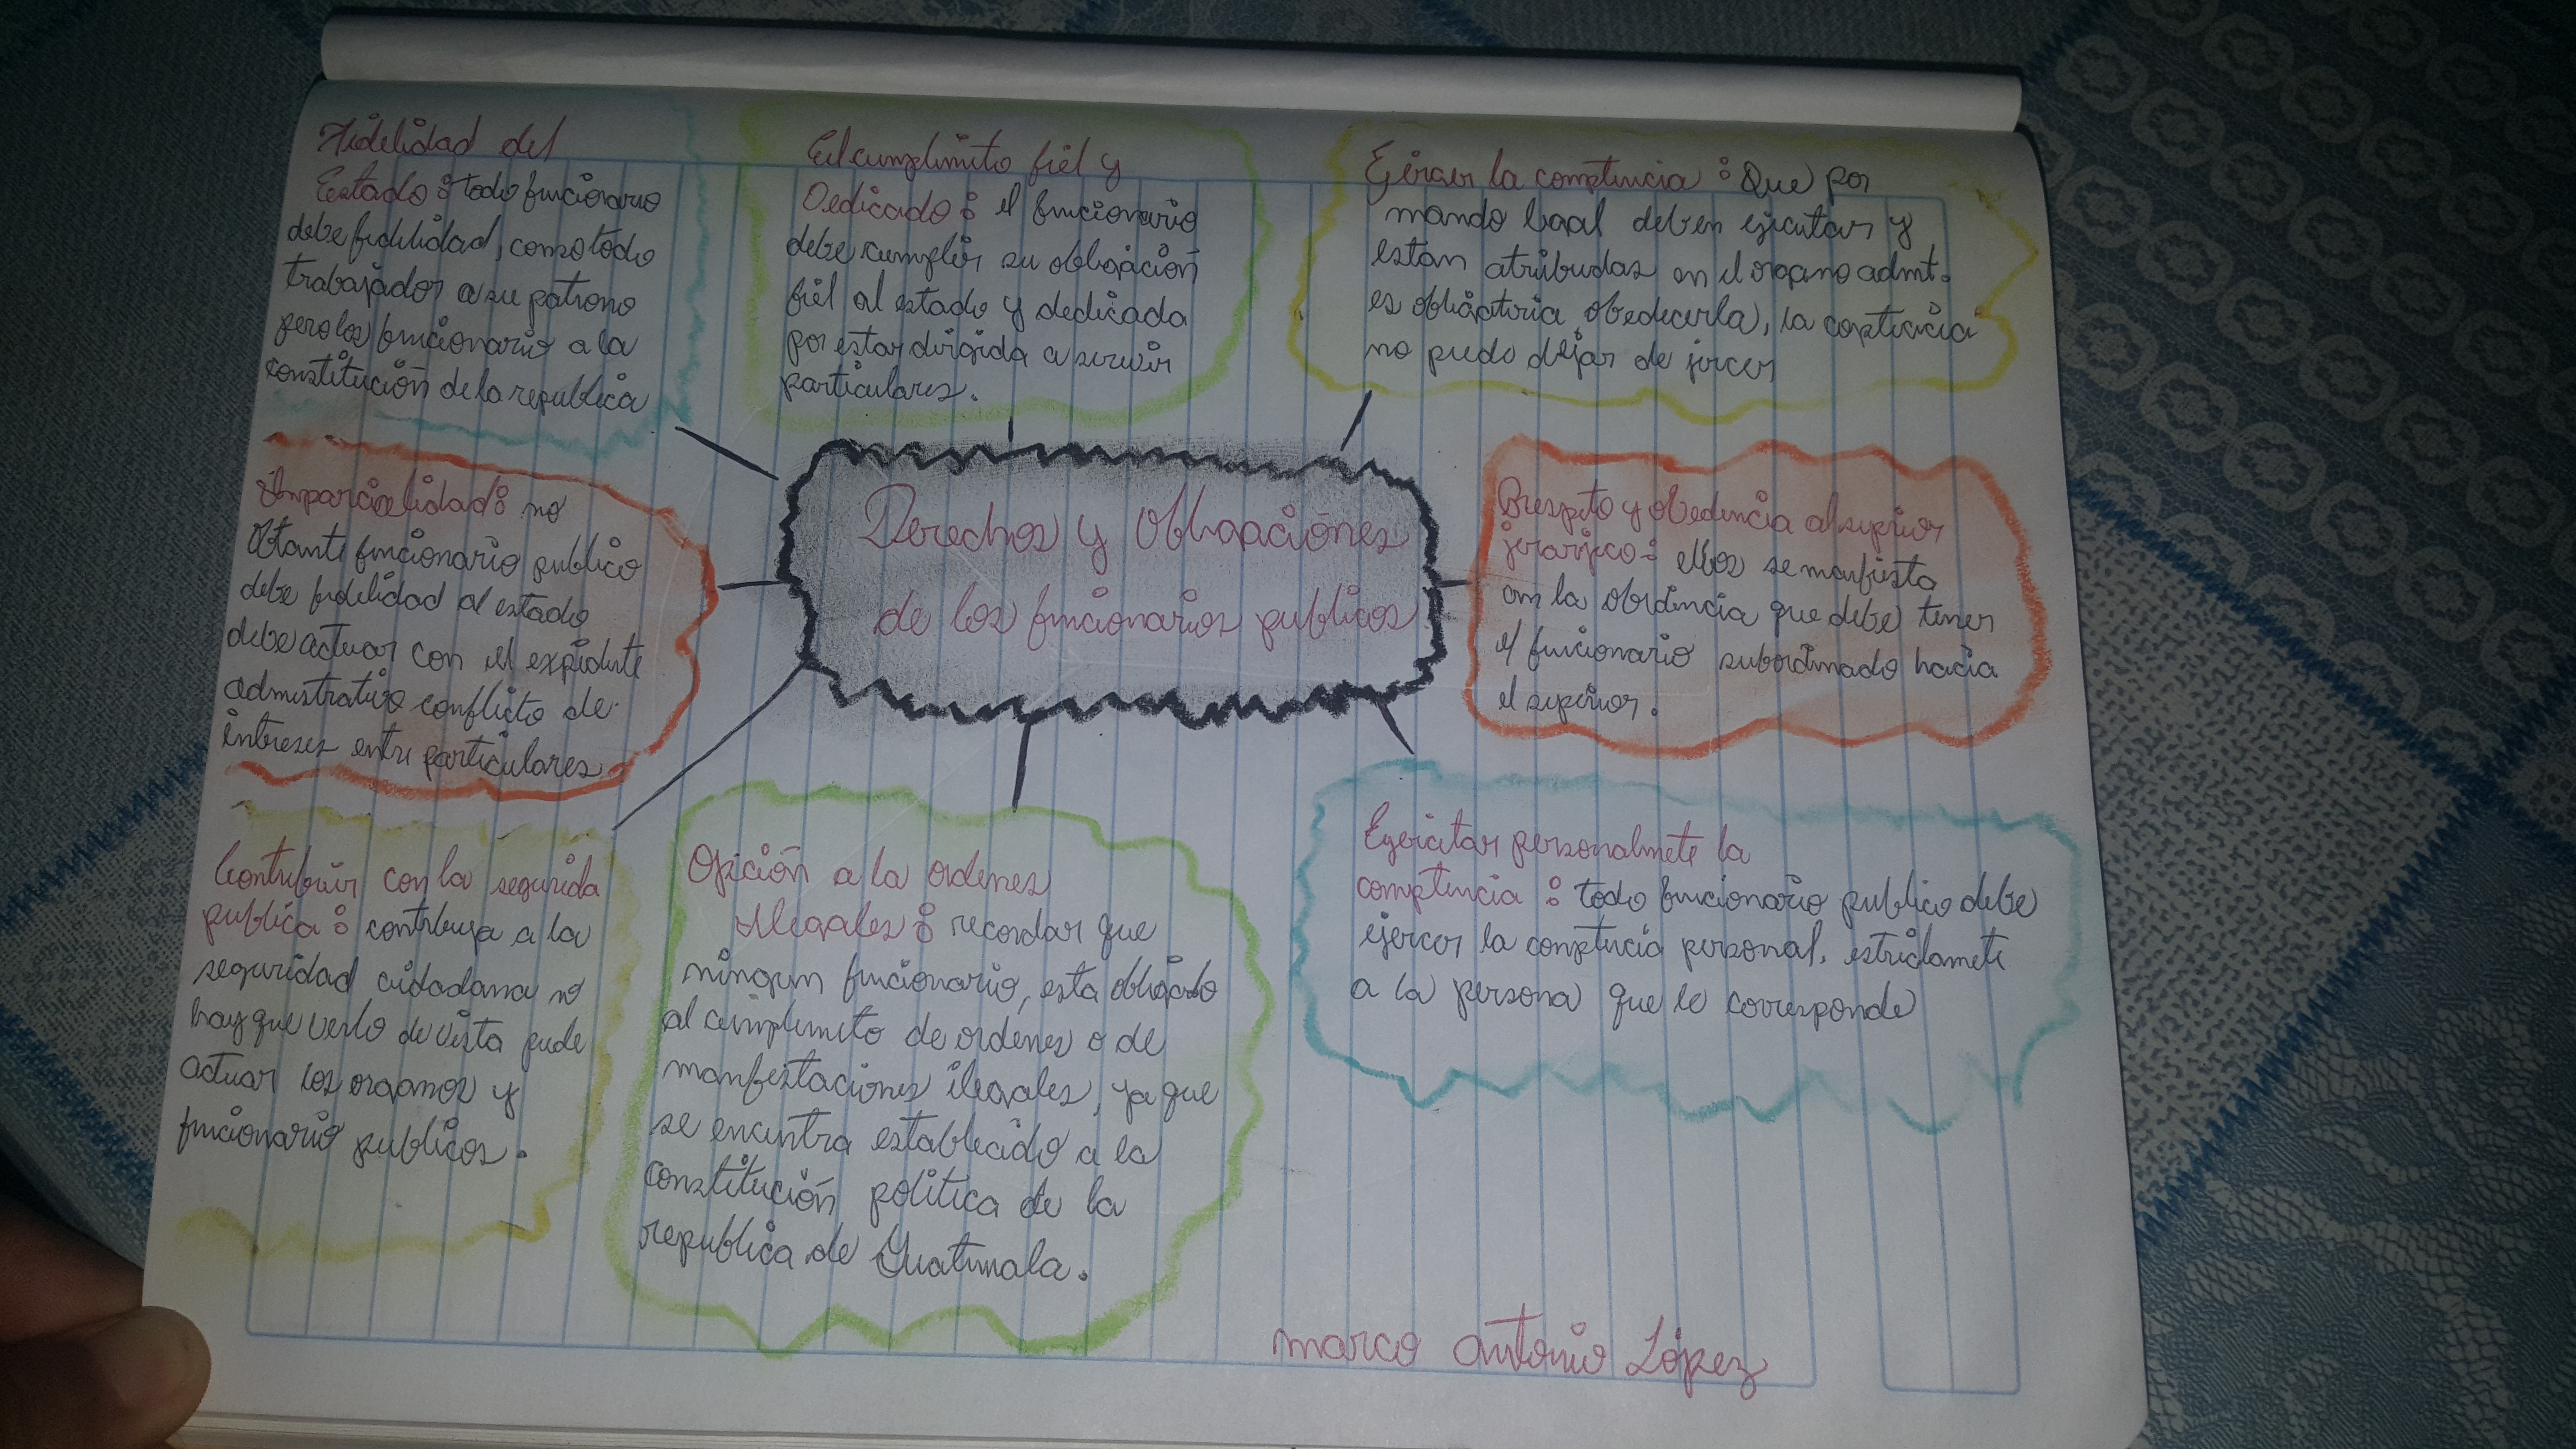 Fidelidad del
Estado: todo funcionario
debe fidelidad, como todo
trabajador a su patrono
pero los funcionario a la
constitución de la republica
El cumplimito fiel y
Dedicado: el funcionario
debe cumplir su obligación
fiel al estado y dedicada
por estar dirigida a servir
particulares.
Ejercer la comptencia: Que por
mando legal deben ejecutar y
estan atribudas en el organo admt.
es obligatoria obedecerla, la
no puede dejar de jercer
Imparcialidad: no
Obtante funcionario publico
debe fidelidad al estado
debe actuar con el expidente
admistrativo conflicto de
intereses entre particulares
Derechos y Obligaciónes
de los funcionarios publicos
Respeto y obedencia al superior
jerarjico: ellos se manfiesta
con la obidencia que debe tener
el funcionario subordinado hacia
el superior.
Contribuir con la segurida
publica: contribuya a la
seguridad ciudadana no
hay que verlo de vista puede
actuar los organos y
funcionario publicos.
Opición a la ordenes
Ilegales: recordar que
ningun funcionario, esta obligado
al cumplimito de ordenes o de
manfestaciones ilegales, ya que
se encuntra establecido a la
constitución politica de la
republica de Guatemala.
Egercitar personalmete la
comptencia: todo funcionario publico debe
ejercer la comptencia personal. estridamete
a la persona que le corresponde
marco antonio López